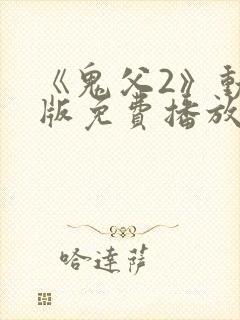 《鬼父2》動
版免費播放
哈達薩